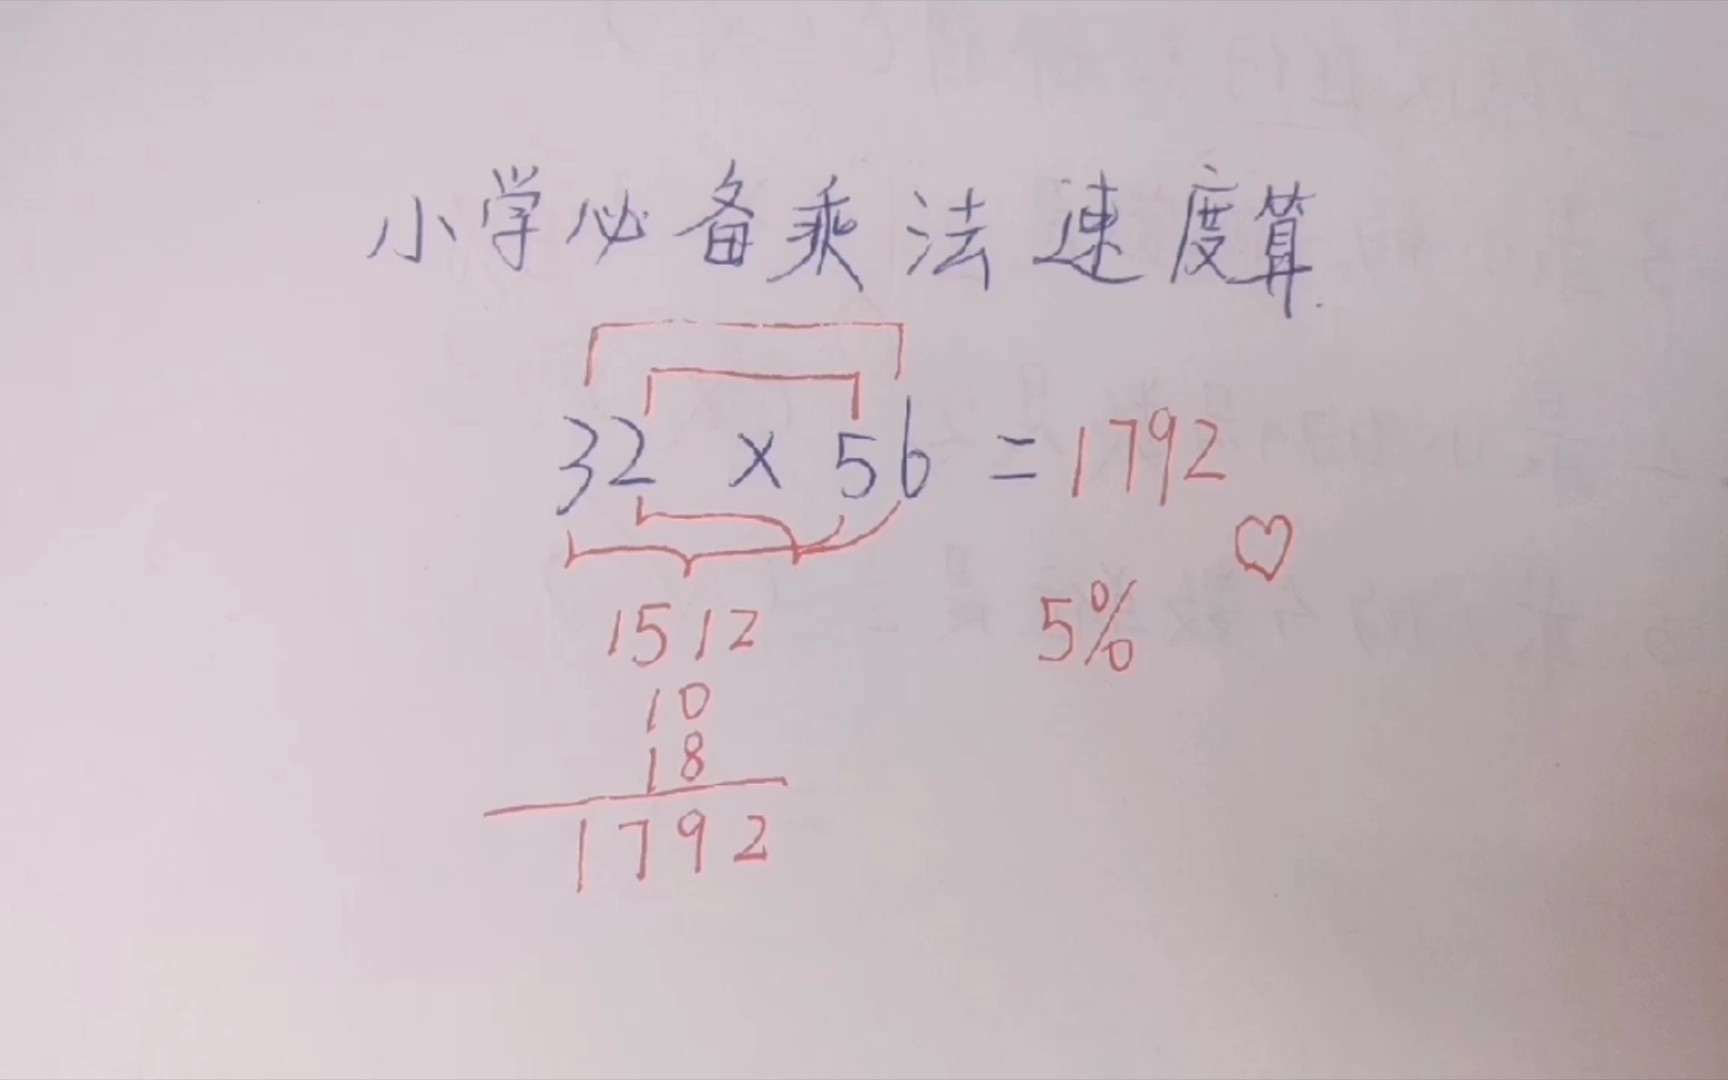 小学必备乘法速度算
32 × 56 = 1792
1512
5%
10
18
1792